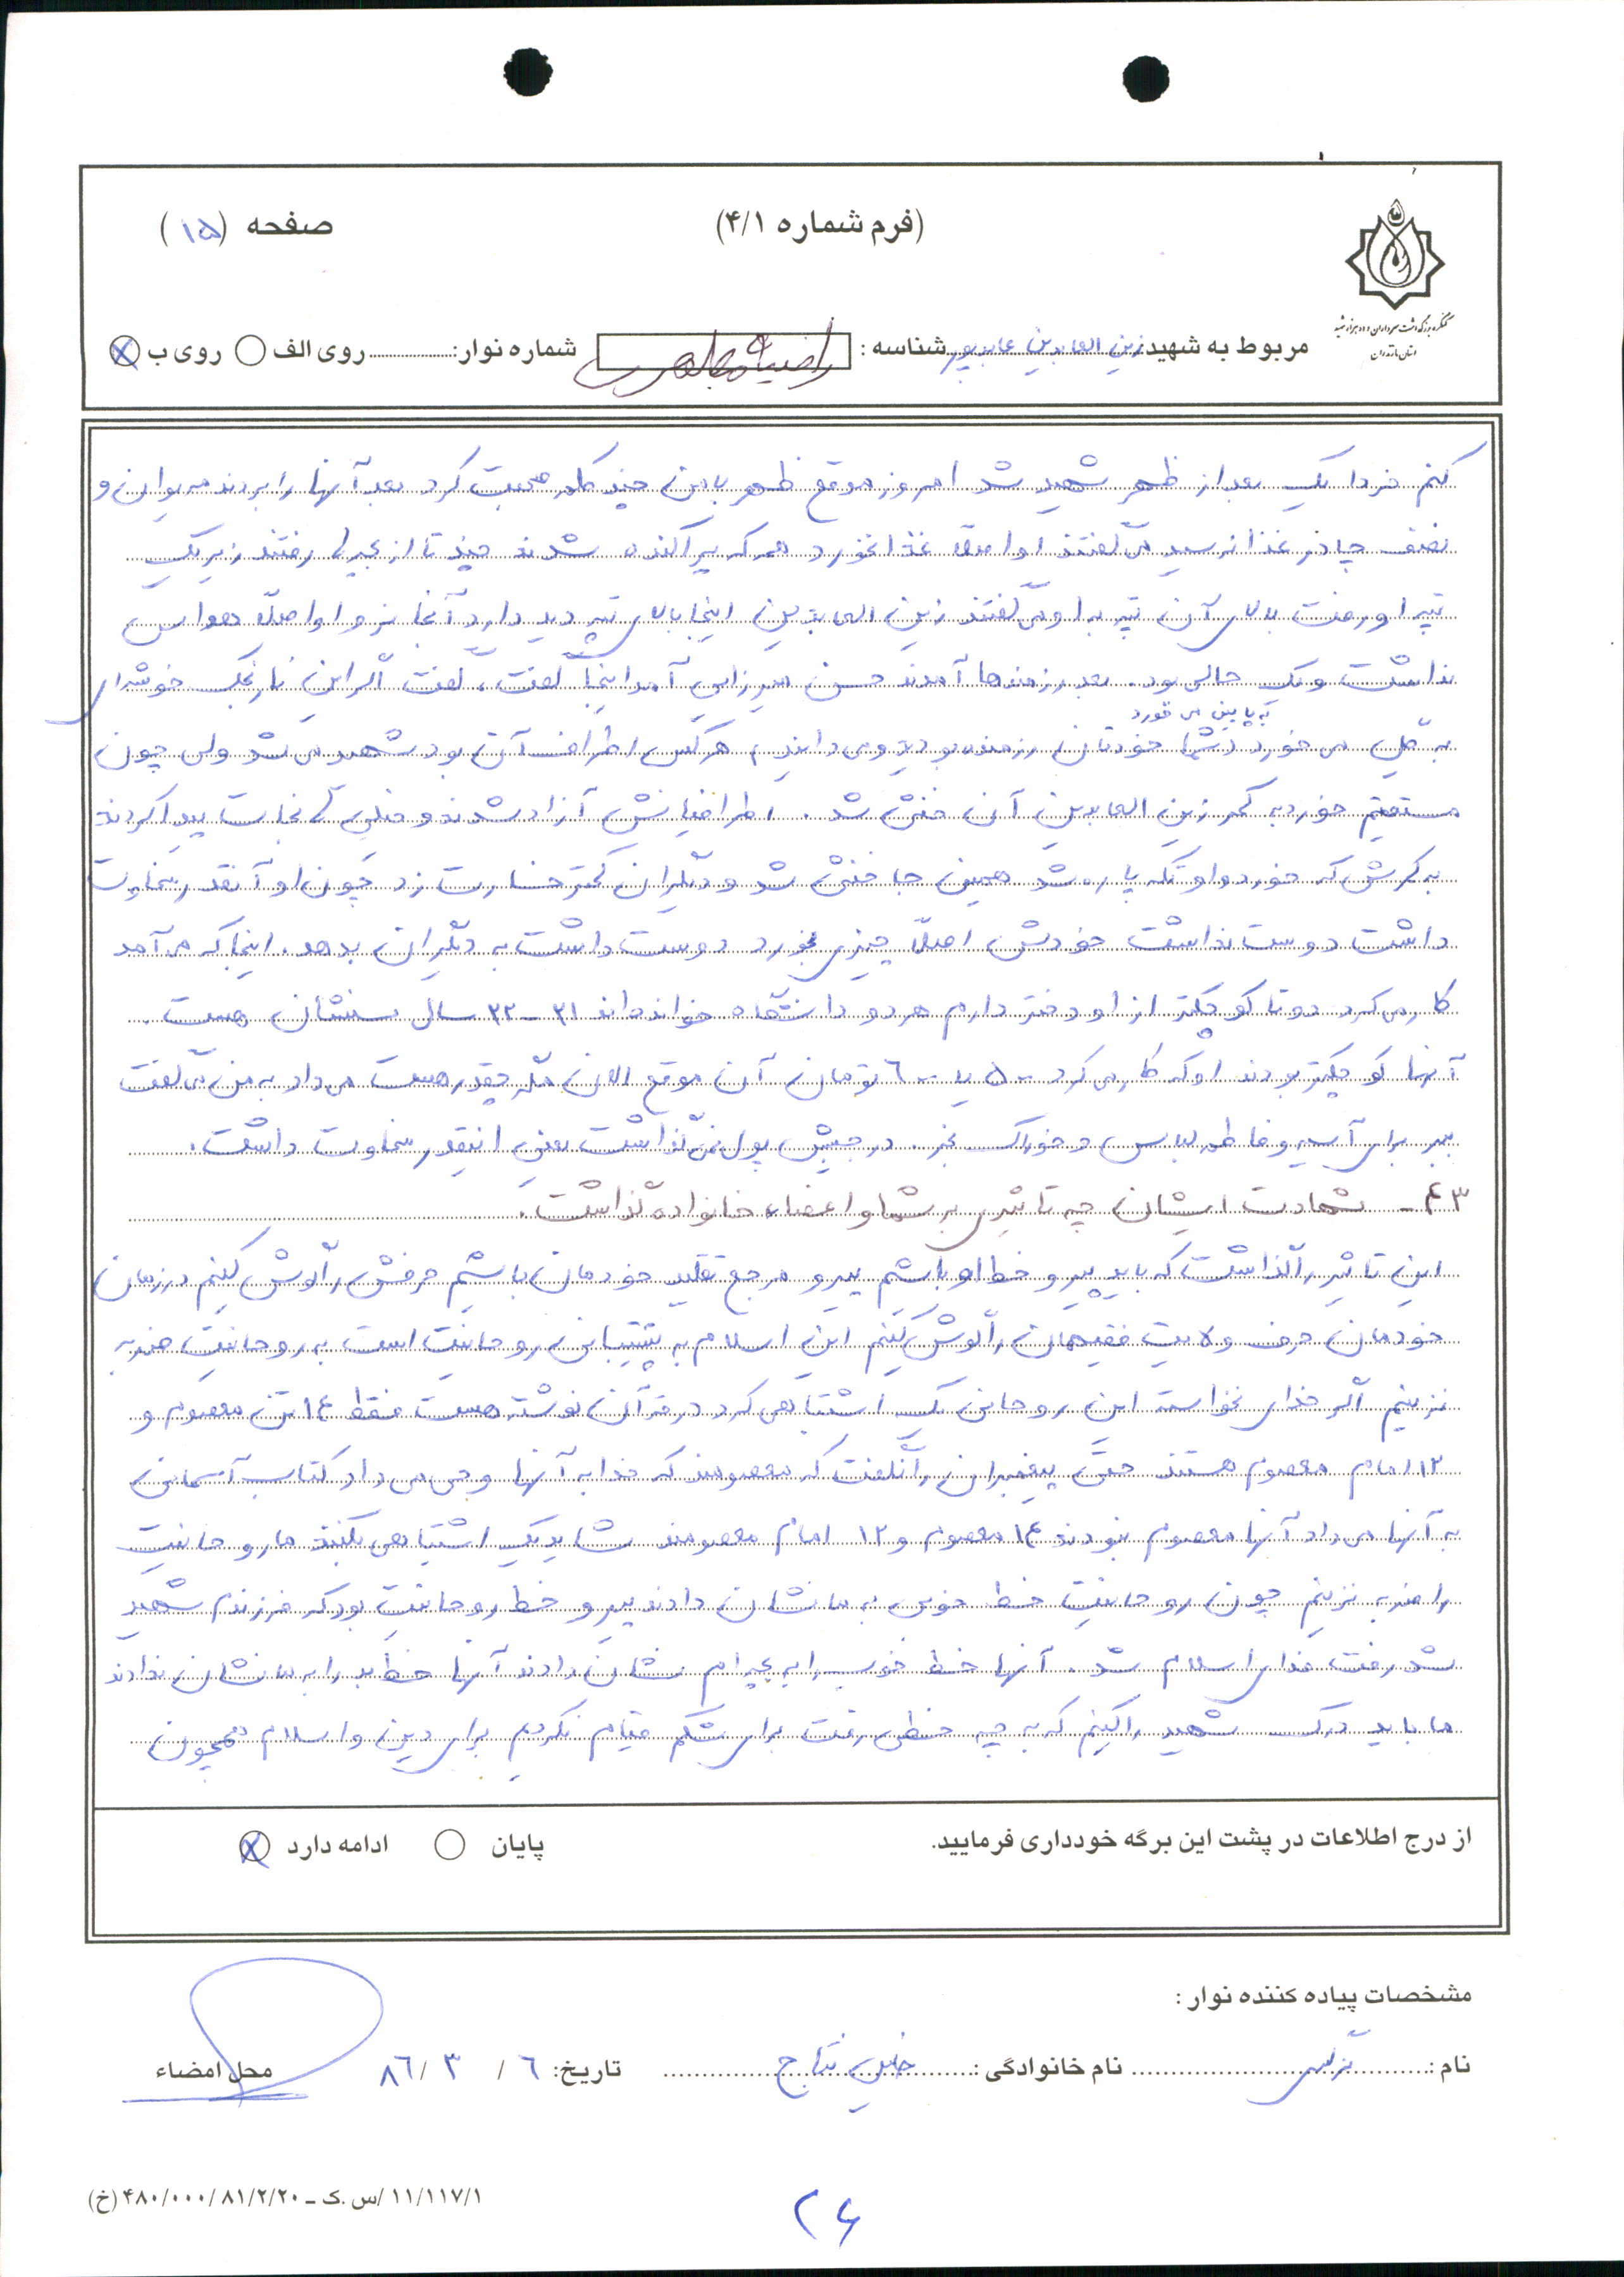 (فرم شماره ۴/۱)
صفحه (۱۵)
کنگره بزرگداشت سرداران و ده هزار شهید
استان مازندران
مربوط به شهید زین العابدین عابدپور شناسه : شماره نوار: روی الف روی ب
کنم فردا یک بعد از ظهر شهید شد امروز موقع ظهر با من چند کلمه صحبت کرد بعد آنها را بردند مریوان و
نصف چادر غذا نرسید می گفتند او اصلاً غذا نخورد همه که پراکنده شدند چند تا از بچه ها رفتند زیر یک
تپه او رفت بالای آن تپه به او می گفتند زین العابدین اینجا بالای تپه دید دارد آنجا نرو او اصلاً حواس
نداشت و یک حالی بود. بعد رزمنده ها آمدند حسن میرزایی آمد اینجا گفت، گفت اگر این نارنجک خوشه ای
به پایین می خورد
به گل می خورد شما خودتان رزمنده بودید و می دانید هر کس اطراف آن بود شهید می شد ولی چون
مستقیم خورد به کمر زین العابدین آن خنثی شد. اطرافیانش آزاد شدند و خیلی ها نجات پیدا کردند
به کمرش که خورد و او تکه پاره شد همین جا خنثی شد و دیگران کمتر خسارت زد چون او آنقدر سخاوت
داشت دوست نداشت خودش اصلاً چیزی بخورد دوست داشت به دیگران بدهد. اینجا که می آمد
کار می کرد دو تا کوچکتر از او دختر دارم هر دو دانشگاه خوانده اند ۳۱ - ۳۲ سال سنشان هست.
آنها کوچکتر بودند او که کار می کرد ۵۰ یا ۶۰ تومان آن موقع الان مگر چقدر هست می داد به من می گفت
ببر برای آسیه و فاطمه لباس و خوراک بخر. در جیبش پول نمی گذاشت یعنی اینقدر سخاوت داشت.
۴۳- شهادت ایشان چه تاثیری بر شما و اعضاء خانواده گذاشت.
این تاثیر را گذاشت که باید پیرو خط او باشیم پیرو مرجع تقلید خودمان باشیم حرفش را گوش کنیم در زمان
خودمان حرف ولایت فقیهمان را گوش کنیم این اسلام به پشتیبانی روحانیت است به روحانیت ضربه
نزنیم اگر خدای نخواسته این روحانی یک اشتباهی کرد در قرآن نوشته هست فقط ۱۴ تن معصوم و
۱۲ امام معصوم هستند حتی پیغمبران را نگفت که معصومند که خدا به آنها وحی می داد کتاب آسمانی
به آنها می داد آنها معصوم نبودند ۱۴ معصوم و ۱۲ امام معصومند شاید یک اشتباهی بکنند ما روحانیت
را ضربه نزنیم چون روحانیت خط خوبی به ما نشان دادند پیرو خط روحانیت بود که فرزندم شهید
شد رفت فدای اسلام شد. آنها خط خوب را به بچه ام نشان دادند آنها خط بد را به ما نشان ندادند
ما باید درک شهید را کنیم که به چه خطی رفت برای شکم قیام نکردیم برای دین و اسلام همچون
از درج اطلاعات در پشت این برگه خودداری فرمایید.
پایان ادامه دارد
مشخصات پیاده کننده نوار :
نام : نرگس نام خانوادگی : خلیلی نتاج تاریخ: ۶ / ۳ / ۸۶ محل امضاء
۱۱/۱۱۷/۱/س.ک - ۴۸۰/۰۰۰/۸۱/۲/۲۰ (خ)
۲۶